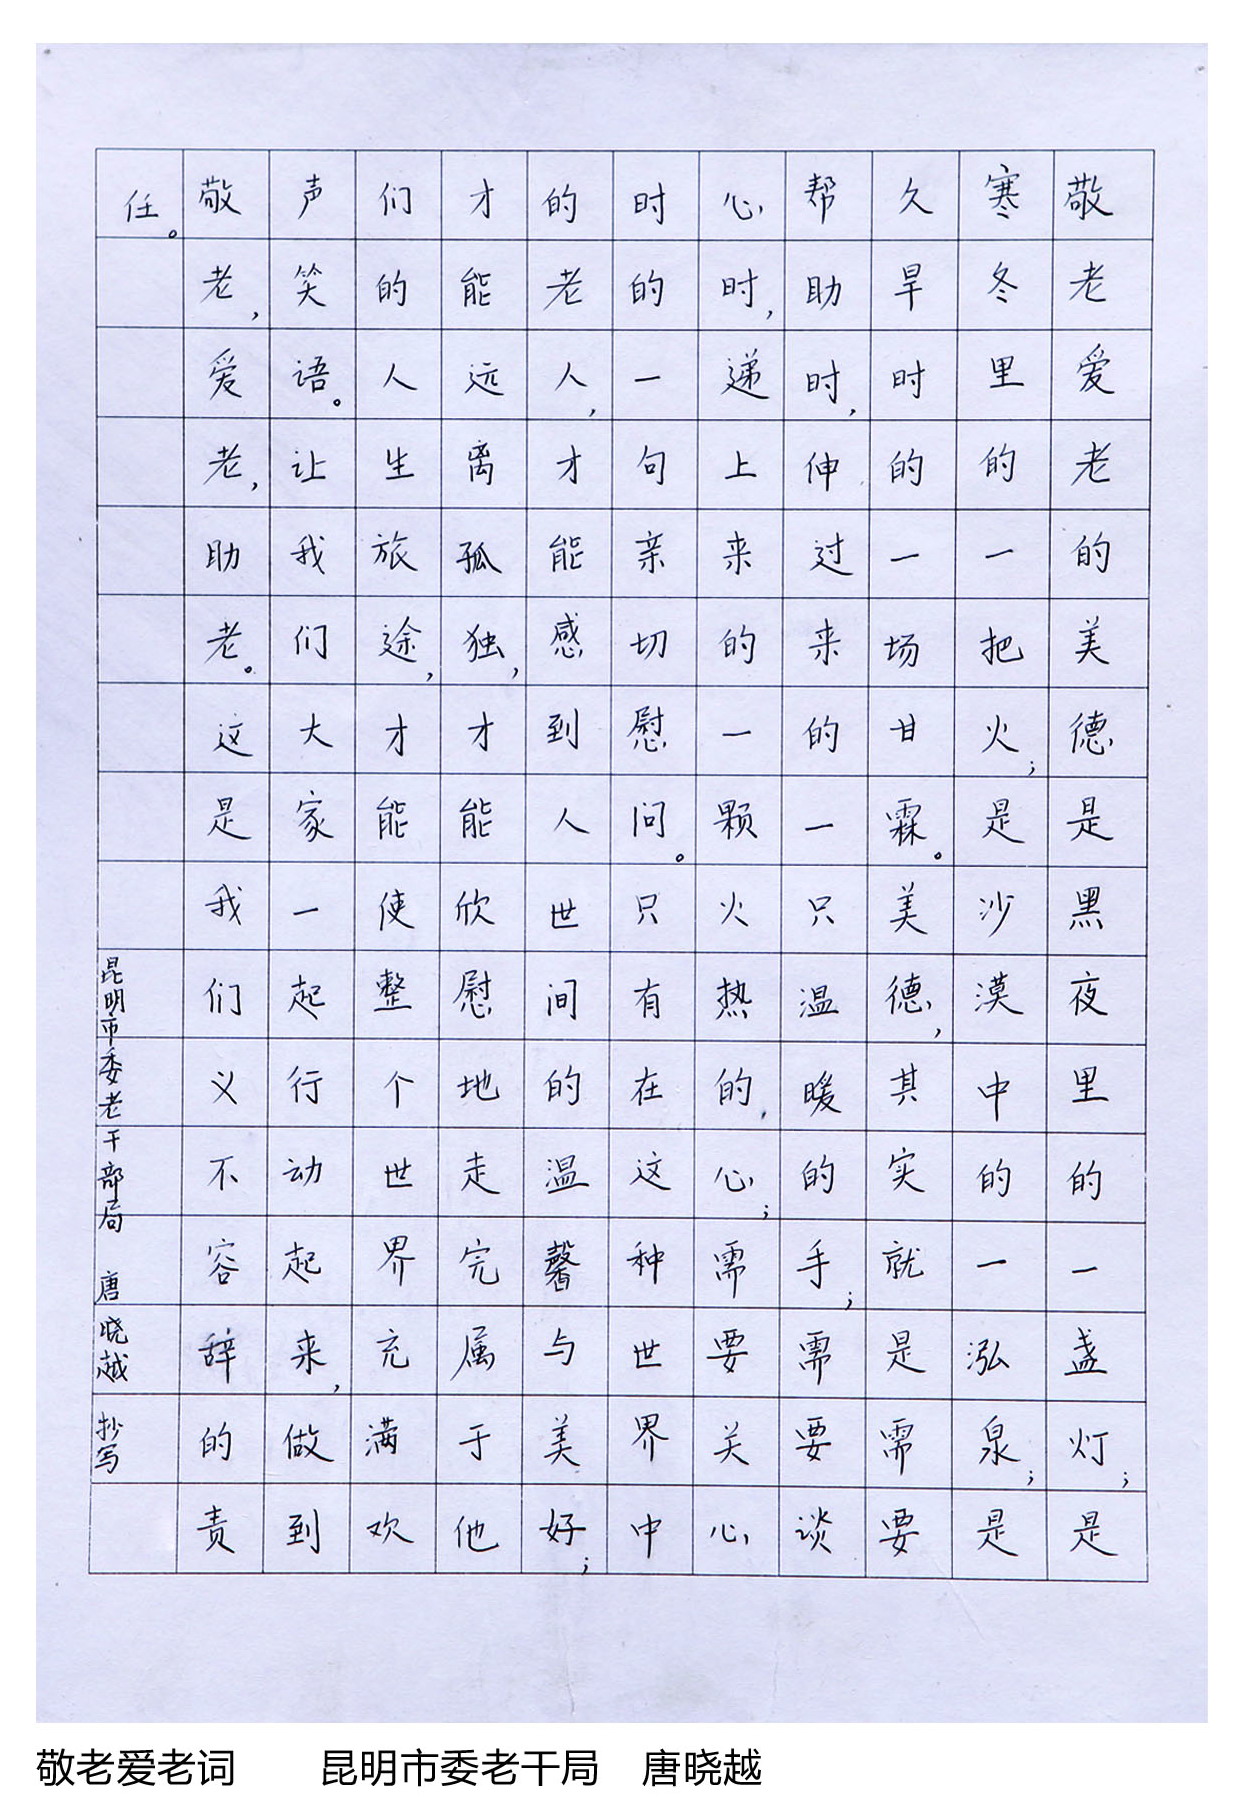 敬老爱老的美德是黑夜里的一盏灯；是
寒冬里的一把火；是沙漠中的一泓泉；是
久旱时的一场甘霖。美德，其实就是需要
帮助时，伸过来的一只温暖的手；需要谈
心时，递上来的一颗火热的，心；需要关心
时的一句亲切慰问。只有在这种世界中
的老人，才能感到人世间的温馨与美好；
才能远离孤独，才能欣慰地走完属于他
们的人生旅途，才能使整个世界充满欢
声笑语。让我们大家一起行动起来，做到
敬老，爱老，助老。这是我们义不容辞的责
任。
昆明市委老干部局 唐晓越 抄写
敬老爱老词 昆明市委老干局 唐晓越